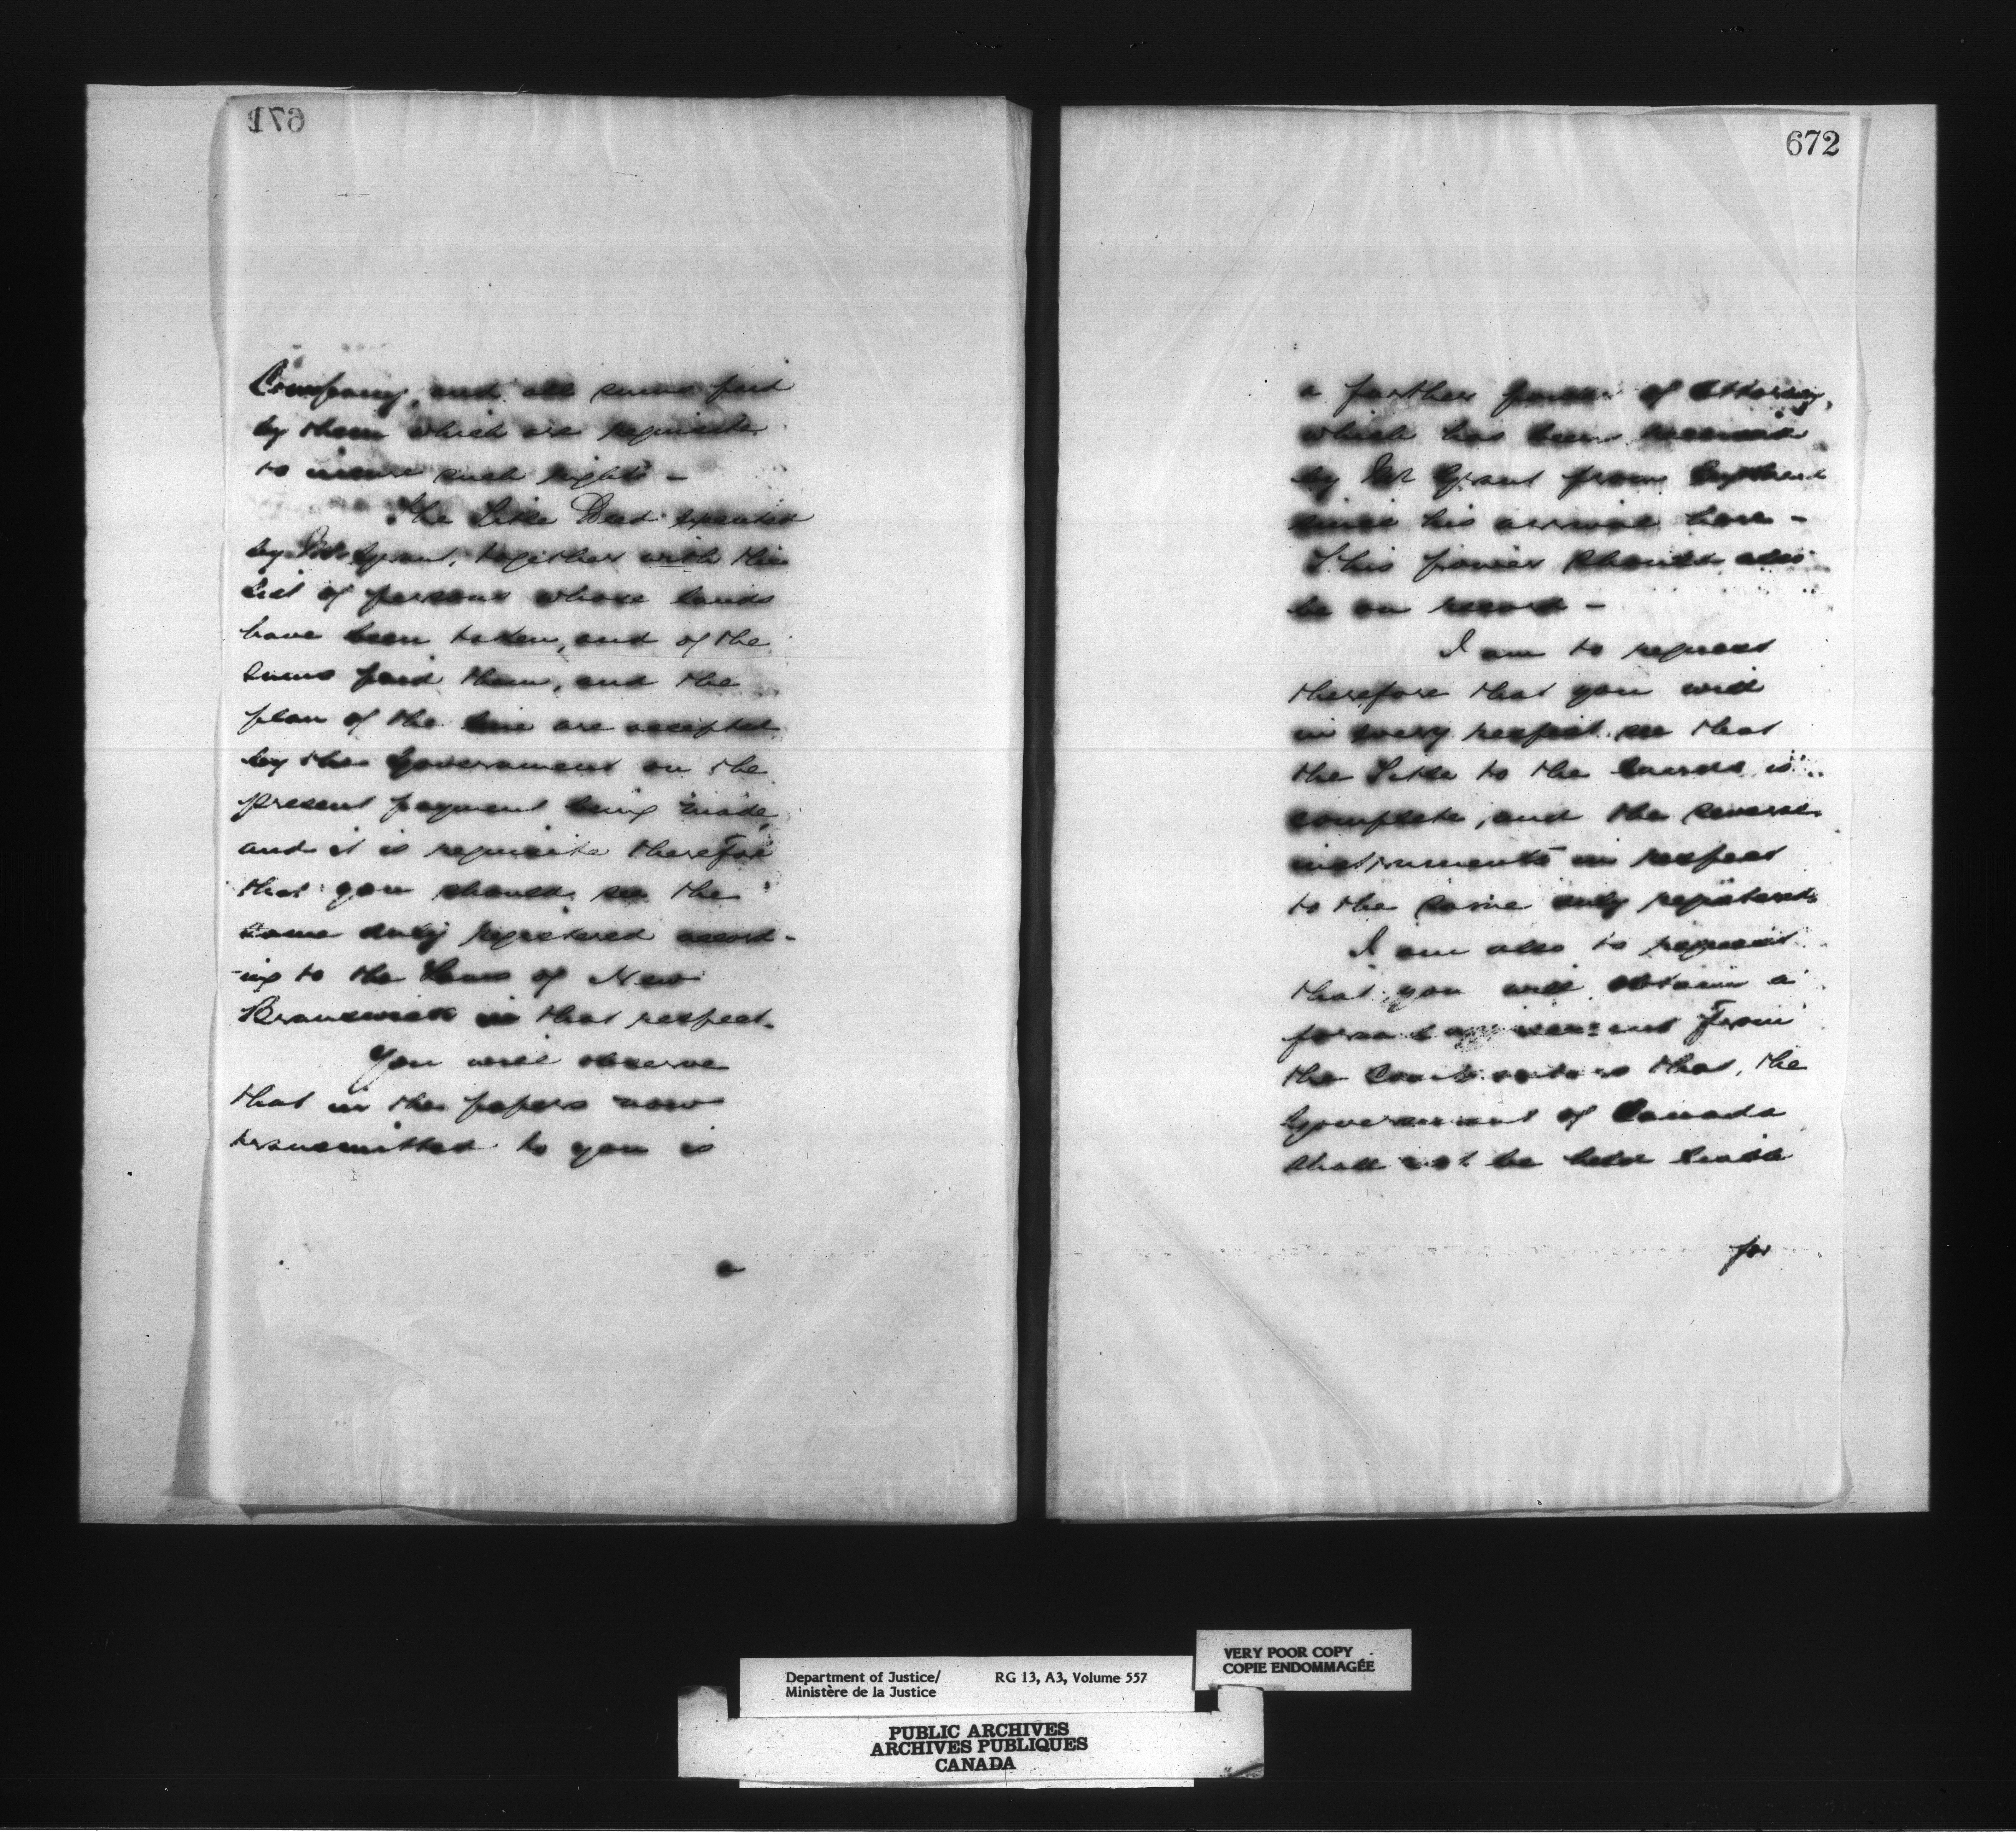 671
Company, and all sums paid
by them which are requisite
to insure such rights -
The Title Deed executed
by Mr Grant, together with the
List of persons whose lands
have been taken, and of the
sums paid them, and the
plan of the line are accepted
by the Government on the
present payment being made,
and it is requisite therefor
that you should see the
same duly registered accord-
-ing to the Laws of New
Brunswick in that respect.
You will observe
that in the papers now
transmitted to you is
a
672
a further power of Attorney,
which has been received
by Mr Grant from
since his arrival here -
This power should also
be on record -
I am to request
therefore that you will
in every respect see that
the Title to the lands is
complete, and the several
instruments in respect
to the same duly registered.
I am also to request
that you will obtain a
formal agreement from
the Contractors that the
Government of Canada
shall not be held liable
for
Department of Justice/
Ministère de la Justice
RG 13, A3, Volume 557
VERY POOR COPY
COPIE ENDOMMAGÉE
PUBLIC ARCHIVES
ARCHIVES PUBLIQUES
CANADA